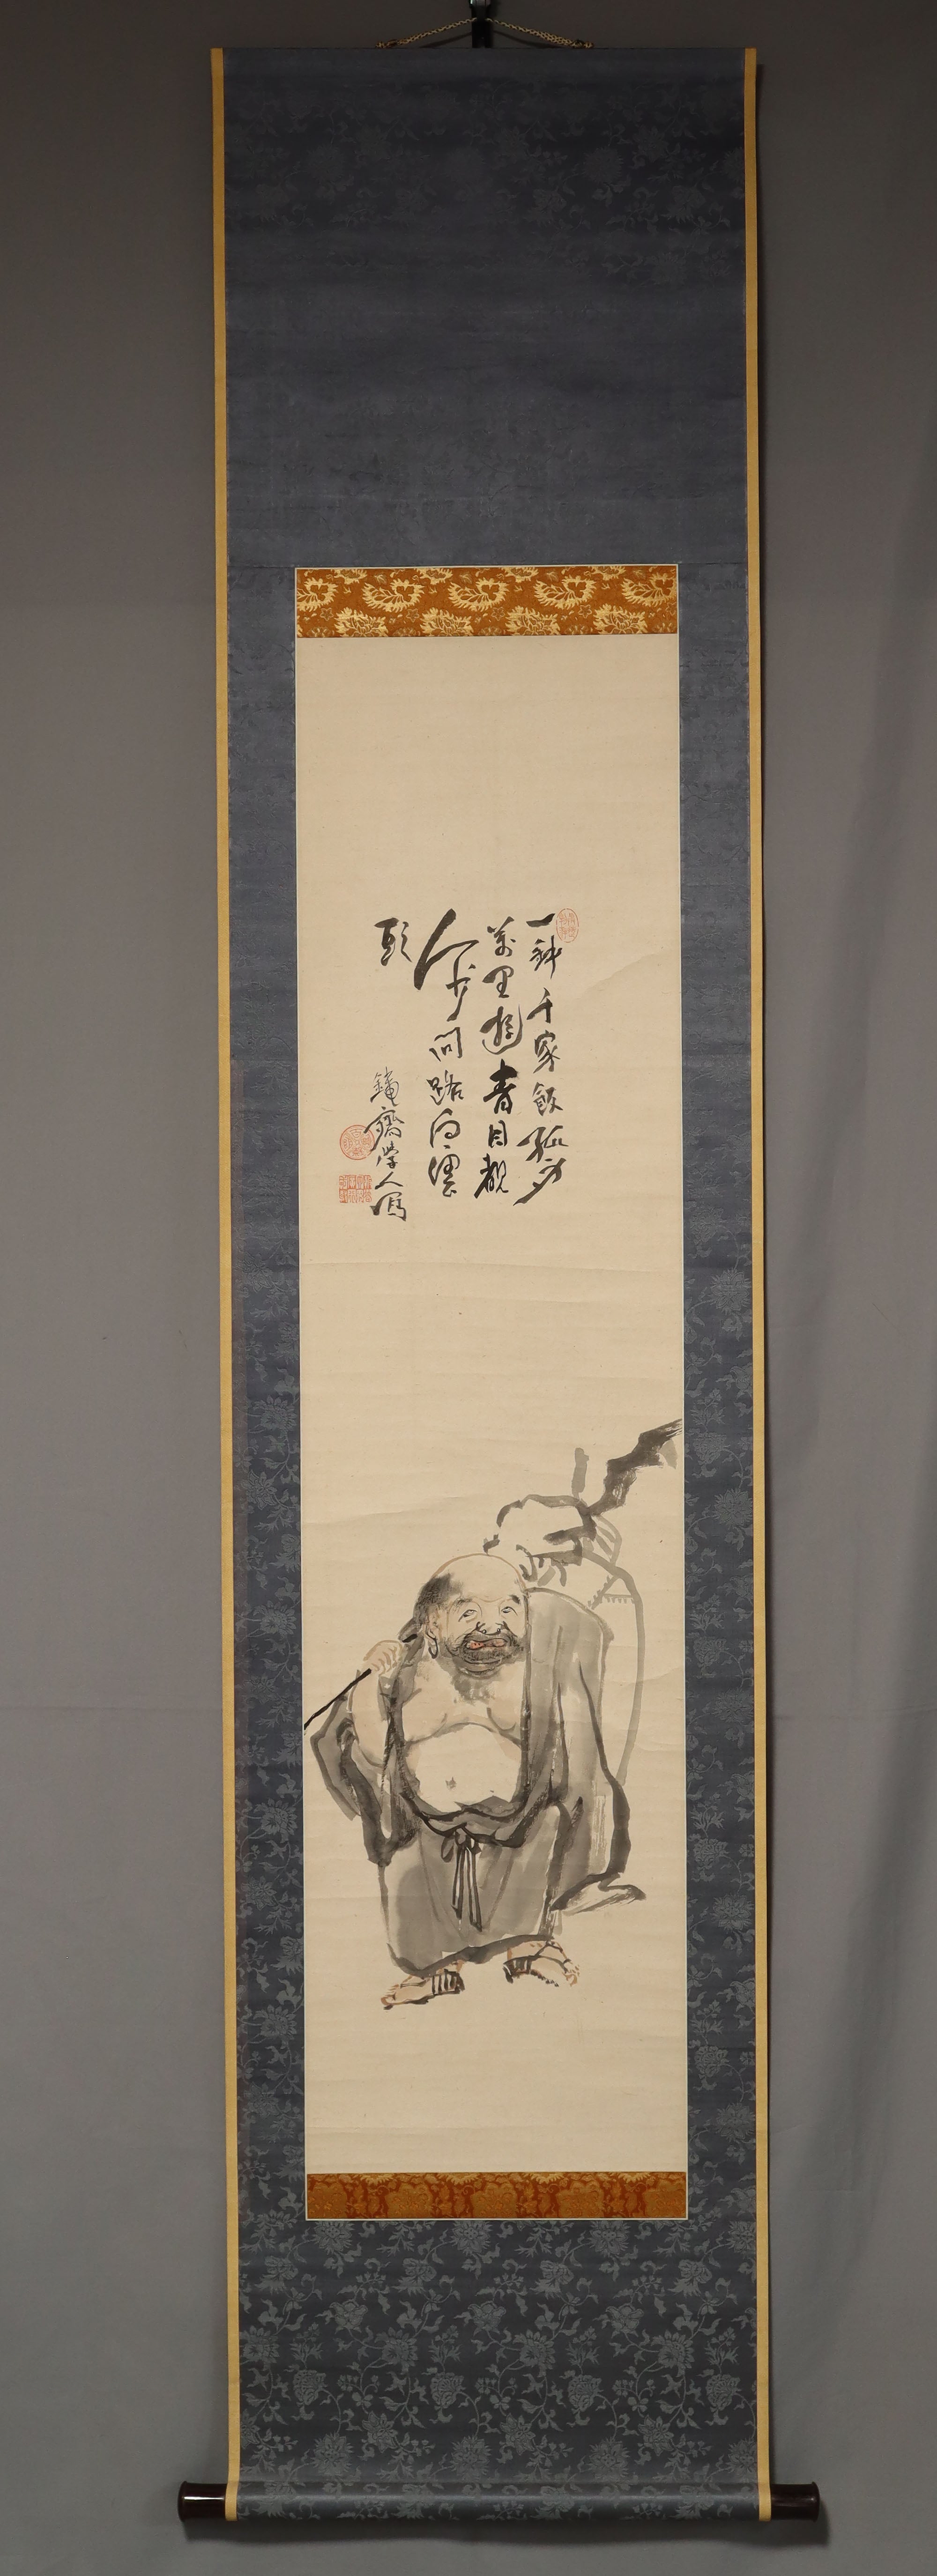 一鉢千家飯孤身
萬里遊青目覩
人少問路白雲
頭
鐵齋學人寫